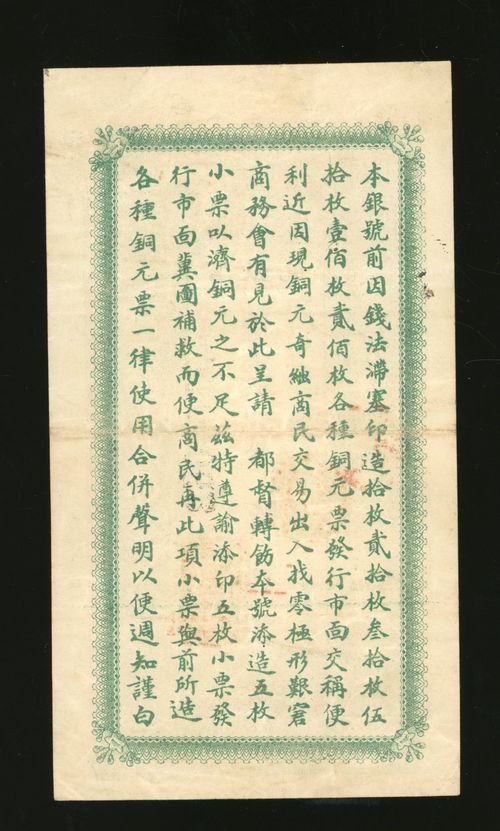 本銀號前因錢法滯塞印造拾枚貳拾枚叁拾枚伍
拾枚壹佰枚貳佰枚各種銅元票發行市面交稱便
利近因現銅元奇絀商民交易出入找零極形艱窘
商務會有見於此呈請 都督轉飭本號添造五枚
小票以濟銅元之不足茲特遵諭添印五枚小票發
行市面冀圖補救而便商民再此項小票與前所造
各種銅元票一律使用合併聲明以便週知謹白